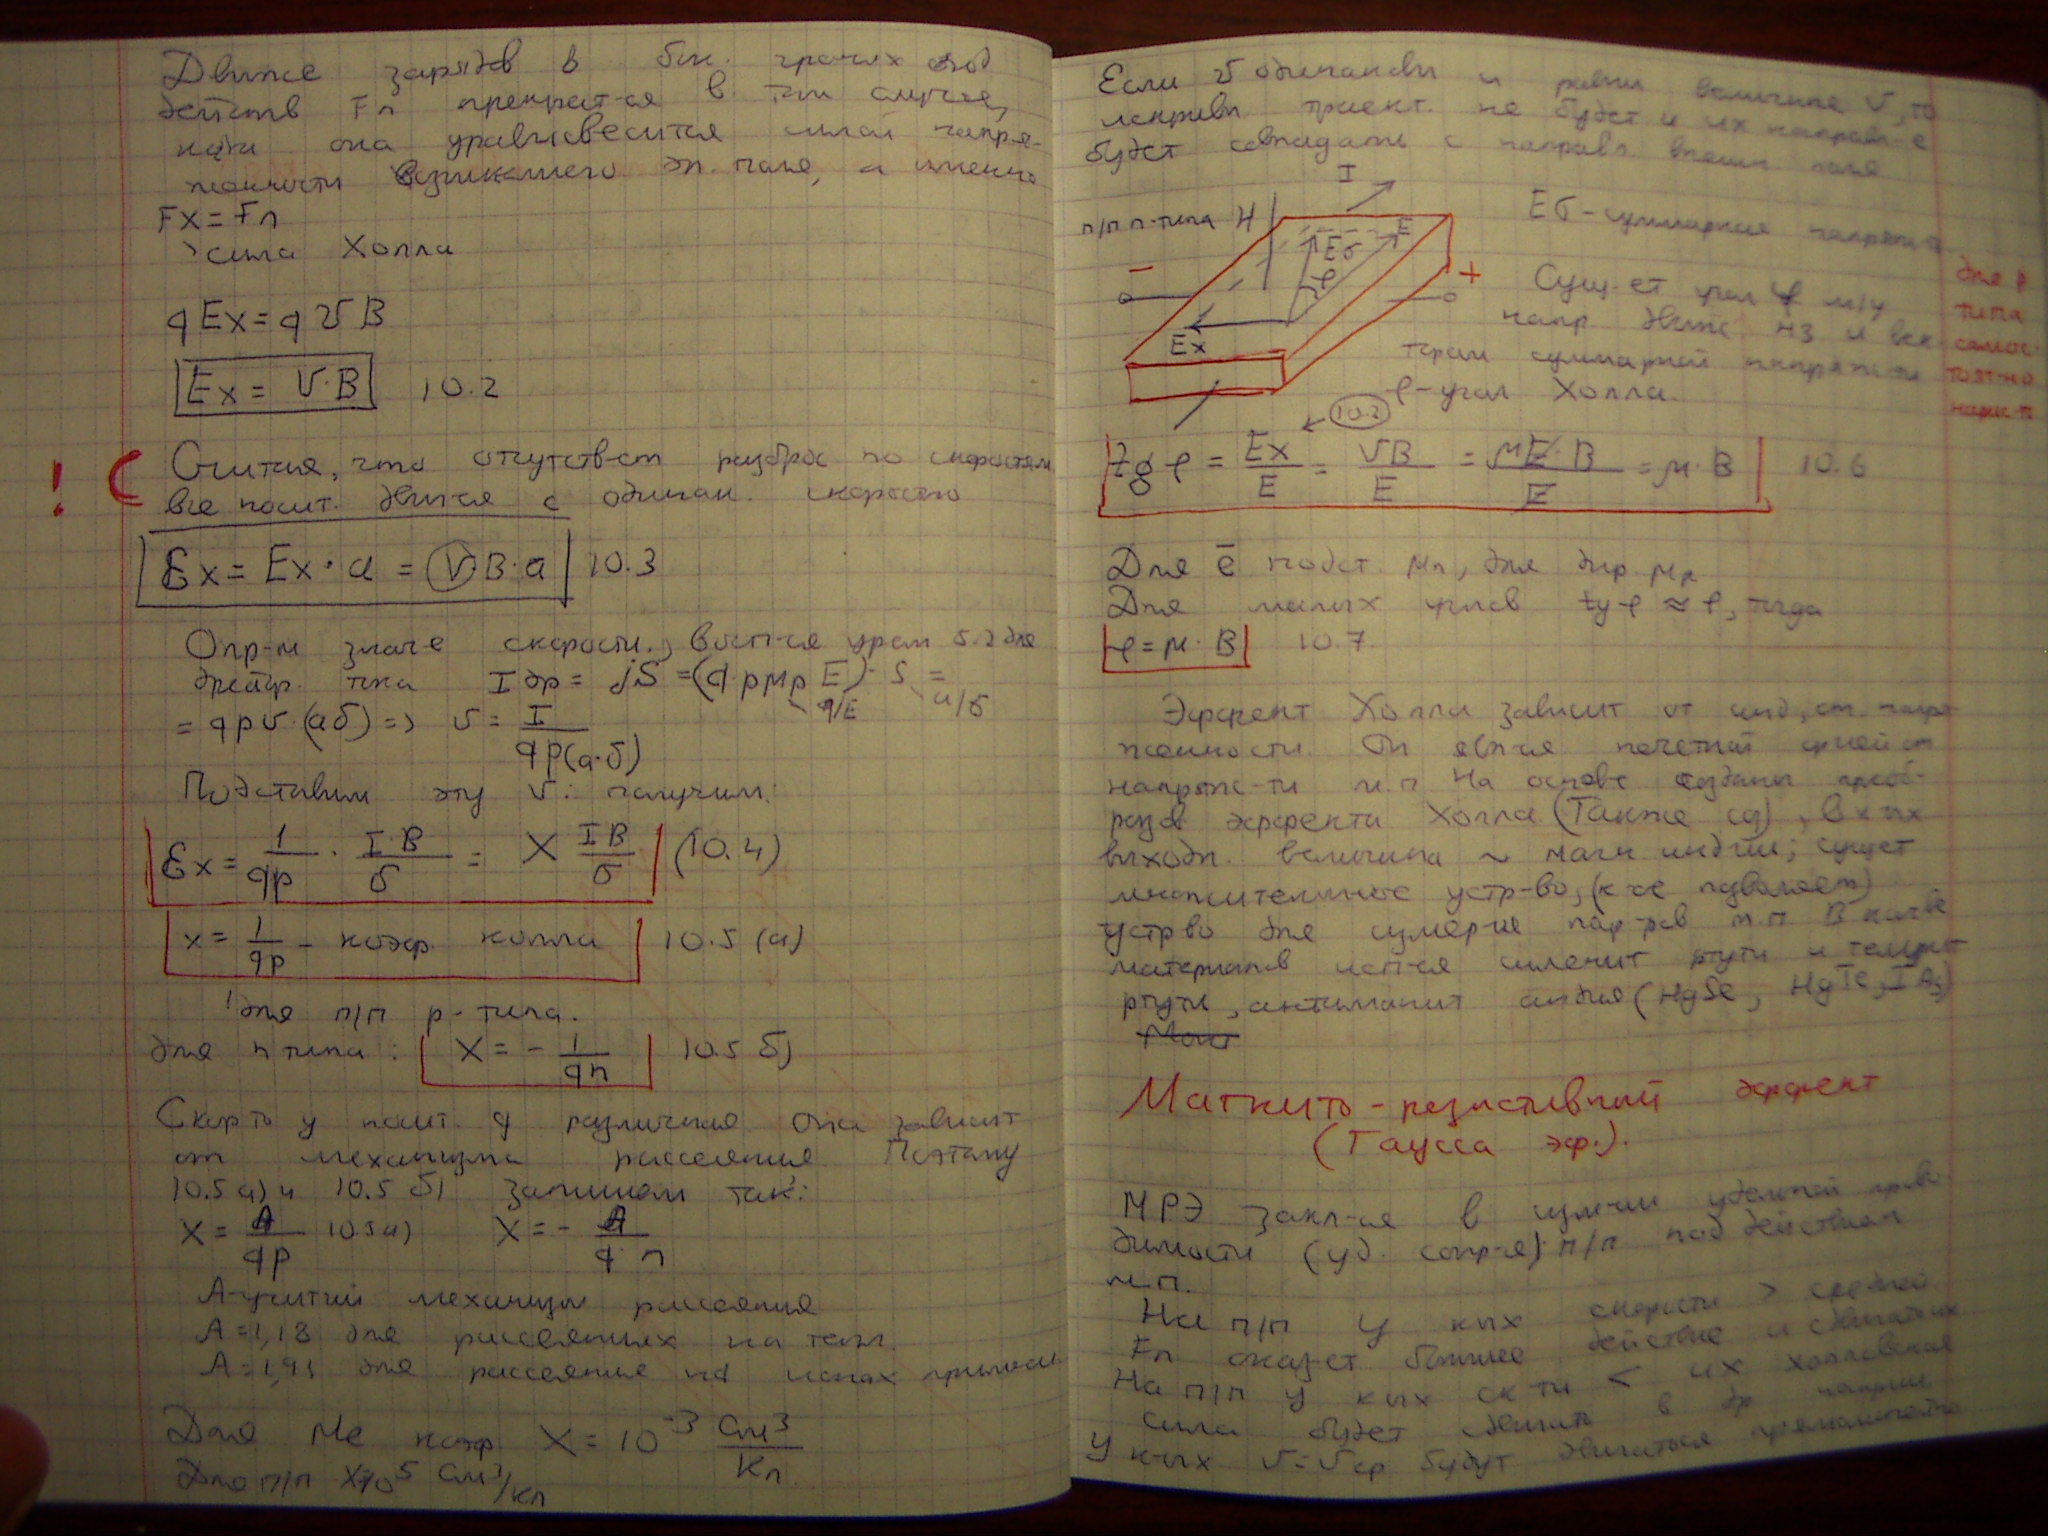 Движе зарядов в бок. гранях под
действ Fл прекратит-ся в том случае,
когда она уравновесится силой напря-
женности возникшего эл. поля, а именно
Fx = Fл
сила Холла
qEx = q v B
Ex = v·B 10.2
! Считая, что отсутств-ет разброс по скоростям
все носит. движтся с одинак. скоростью
Ɛx = Ex·a = v·B·a 10.3
Опр-м знач-е скорости, восп-ся урам 5.2 для
дрейфр. тока I др = jS = (q p μp E)·S =
v/E а/б
= q p v·(аб) => v = I / qp(a·б)
Подставим эту v: получим:
Ɛx = 1/qp · I·B/б = X IB/б (10.4)
x = 1/qp - коэф. холла 10.5 (а)
! для п/п p-типа.
для n типа: X = - 1/qn 10.5 б)
Скорть у носит. q различная. Она зависит
от механизма рассеяния. Поэтому
10.5 а) и 10.5 б) запишем так:
X = A/qp 10.5а) X = - A/q·n
А-учитый механизм рассеяния
А=1,18 для рассеяниях на тепл.
А=1,93 для рассеяние на ионах примеси
Для Ме коэф X = 10^-3 см³/Кл.
Для п/п X 10^5 см³/Кл
Если v одинаковы и равны величине v, то
искривл траект. не будет и их направл-е
будет совпадать с направл внешн поля
I
п/п n-типа H
E
Eб
φ
Ex
- +
Еб - суммарная напряж-ть
Сущ-ет угол φ м/у
напр движ нз и век
тором суммарной напряж-ти
φ-угол Холла.
для p
типа
самос-
тоят-но
нарис-ть
10.2
tg φ = Ex/E = vB/E = μE·B/E = μ·B 10.6
Для ē подст. μn, для дыр. μp
Для малых углов tg φ ≈ φ, тогда
φ = μ·B 10.7
Эффект Холла зависит от инд, от напря
женности. Он явл-ся нечетной функцией от
напряж-ти м.п На основе созданы преоб-
разов эффекта Холла (Также ), в к-ых
выходн. величина ~ магн индкции; сущет
множительное устр-во, (к-ое позволяет)
устрво для измер-ие пар-ров м.п В качве
материалов исп-ся силенит ртути и телурит
ртути, антиманит индия (HgSe, HgTe, )
Магнито-резистивный эффект
(Гаусса эф.).
МРЭ закл-ся в изм-ии удельной прово
димости (уд. сопр-я) п/п под действием
м.п.
На п/п у к-ых скорости > средней
Fл оказ-ет большее действие и сдвигать их
На п/п у к-ых ск-ти < их холловская
сила будет сдвигать в др направл
У к-ых v=vср будут двигаться прямолинейно